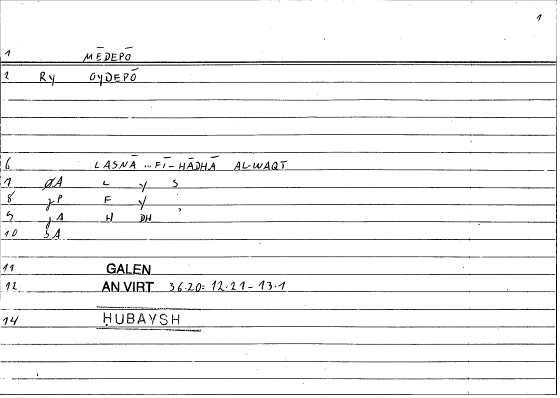 1
1 MĒDEPŌ
2 Ry OYDEPŌ
6 LASNĀ ... FĪ-HĀDHĀ AL-WAQT
7 ØA L Y S
8 P F Y ʾ
9 A H DH
10 3A
11 GALEN
12 AN VIRT 36.20: 12.21-13.1
14 ḤUBAYSH